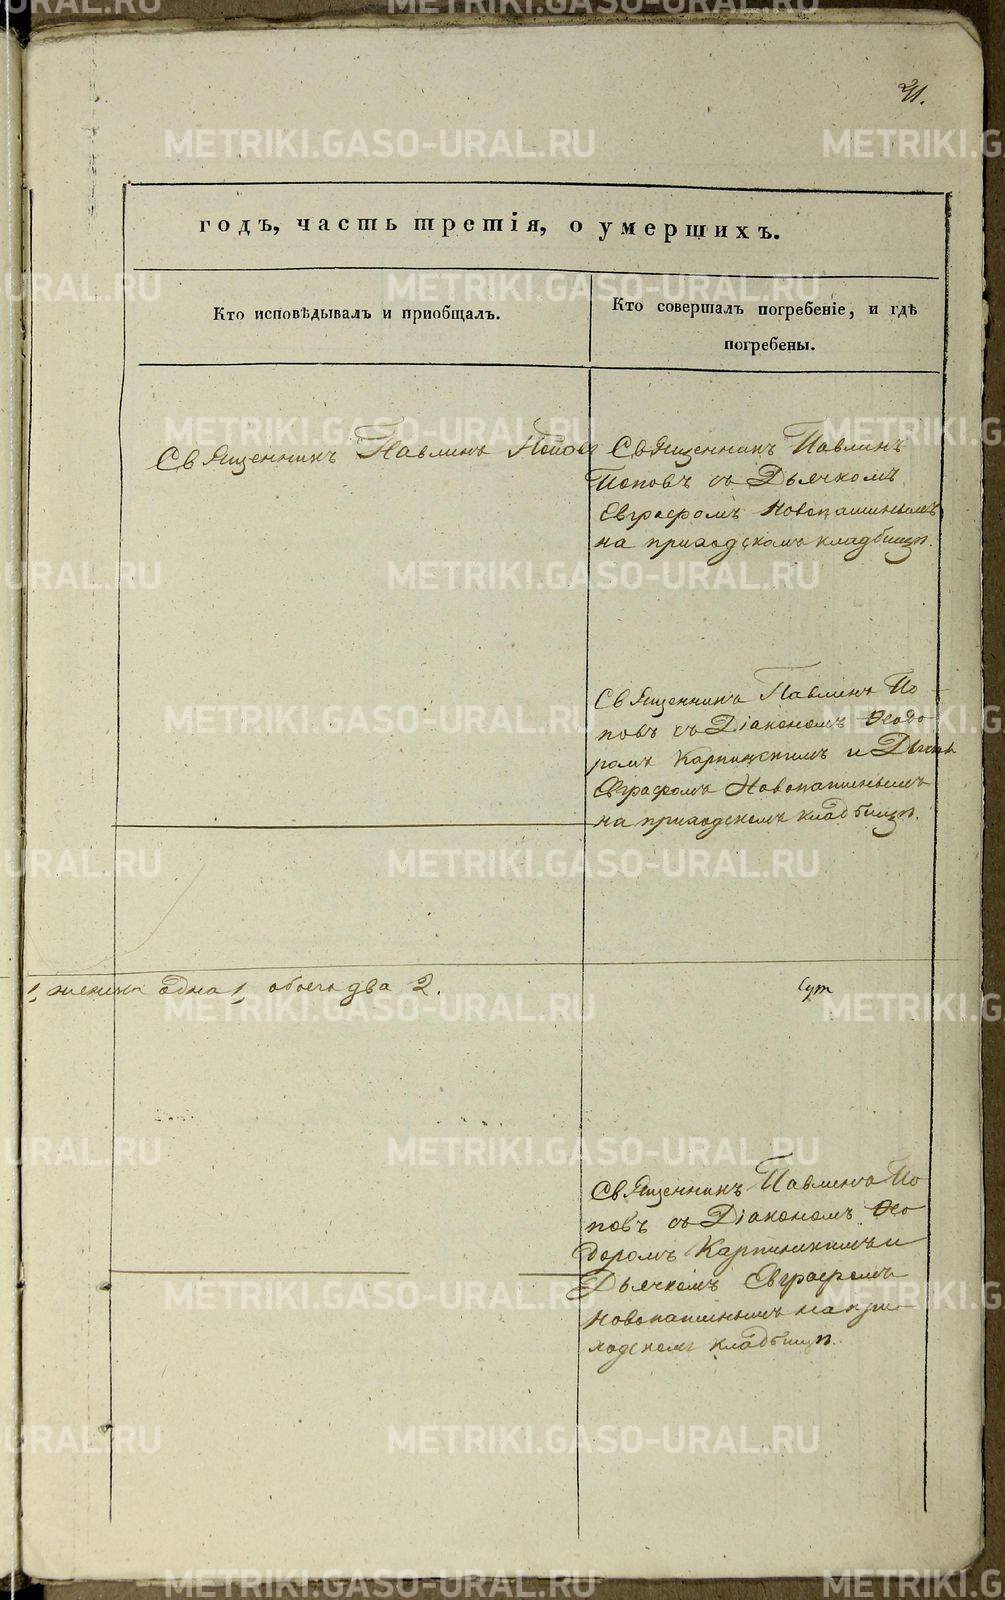 21.
годъ, часть третія, о умершихъ.
Кто исповѣдывалъ и пріобщалъ.
Кто совершалъ погребеніе, и гдѣ
погребены.
Священникъ Павлинъ Поповъ
Священникъ Павлинъ
Поповъ съ Дьячкомъ
Евграфомъ Новопашинымъ
на приходскомъ кладбищѣ.
Священникъ Павлинъ По
повъ съ Діакономъ Ѳеодо
ромъ Карпинскимъ и Дьячк
Евграфомъ Новопашинымъ
на приходскомъ кладбищѣ.
1, женска одна 1, обоего два 2.
Сут
Священникъ Павлинъ По
повъ съ Діакономъ Ѳео
доромъ Карпинскимъ и
Дьячкомъ Евграфомъ
Новопашинымъ на при
ходскомъ кладбищѣ.
METRIKI.GASO-URAL.RU